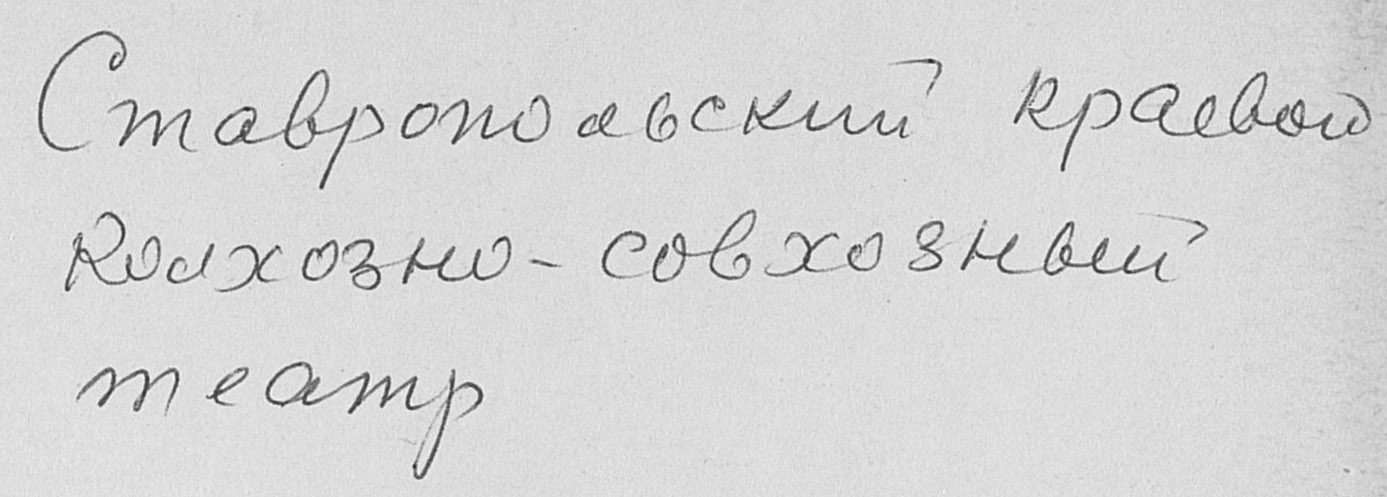 Ставропольский краевой
колхозно-совхозный
театр